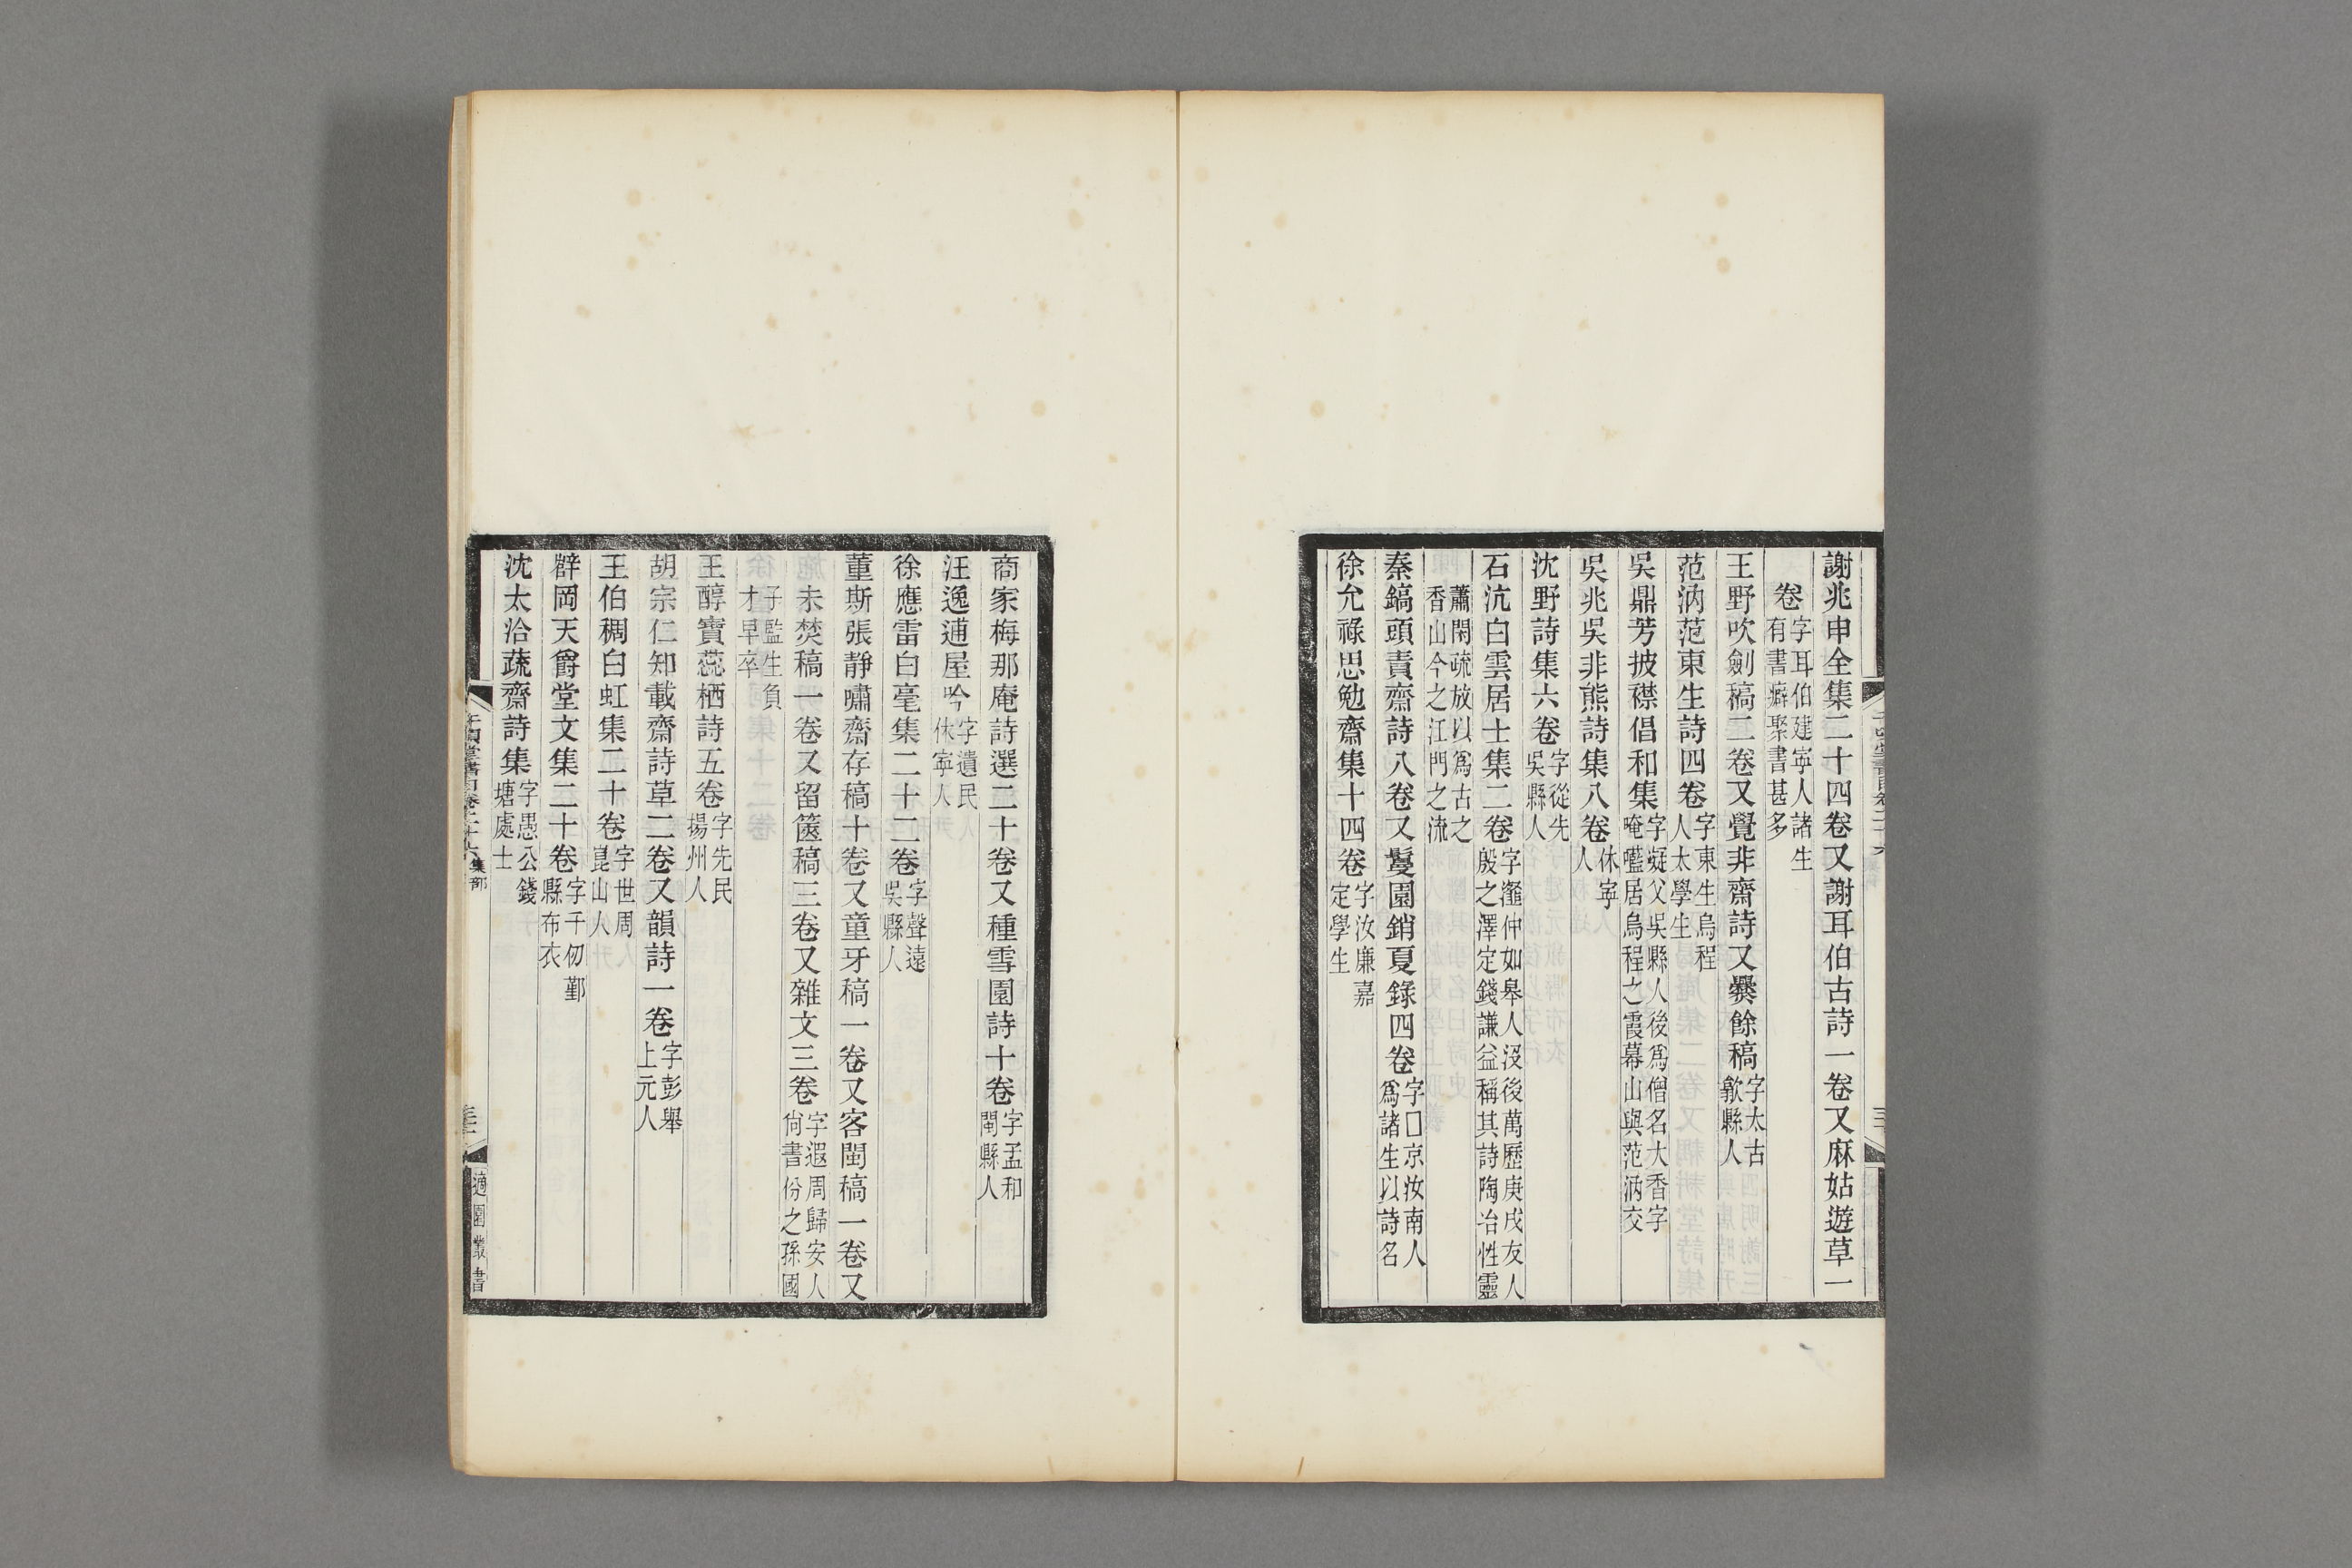 謝兆申全集二十四卷又謝耳伯古詩一卷又麻姑遊草一
卷字耳伯建寧人諸生有書癖聚書甚多
王野吹劍稿二卷又覺非齋詩又爨餘稿字太古歙縣人
范汭范東生詩四卷字東生烏程人太學生
吳鼎芳披襟倡和集字凝父吳縣人後爲僧名大香字唵囕居烏程之霞幕山與范汭交
吳兆吳非熊詩集八卷休寧人
沈野詩集六卷字從先吳縣人
石沆白雲居士集二卷字瀣仲如皋人沒後萬歷庚戌友人殷之澤定錢謙益稱其詩陶冶性靈
蕭閑疏放以爲古之香山今之江門之流
秦鎬頭責齋詩八卷又鬘園銷夏錄四卷字□京汝南人爲諸生以詩名
徐允祿思勉齋集十四卷字汝廉嘉定學生
商家梅那庵詩選二十卷又種雪園詩十卷字孟和閩縣人
汪逸逋屋吟字遺民休寧人
徐應雷白毫集二十二卷字聲遠吳縣人
董斯張靜嘯齋存稿十卷又童牙稿一卷又客閩稿一卷又
未焚稿一卷又留篋稿三卷又雜文三卷字遐周歸安人尙書份之孫國
子監生負才早卒
王醇寶蕊栖詩五卷字先民揚州人
胡宗仁知載齋詩草二卷又韻詩一卷字彭舉上元人
王伯稠白虹集二十卷字世周崑山人
辟岡天爵堂文集二十卷字千仞鄞縣布衣
沈太洽蔬齋詩集字愚公錢塘處士
千頃堂書目卷二十六集部
適園叢書